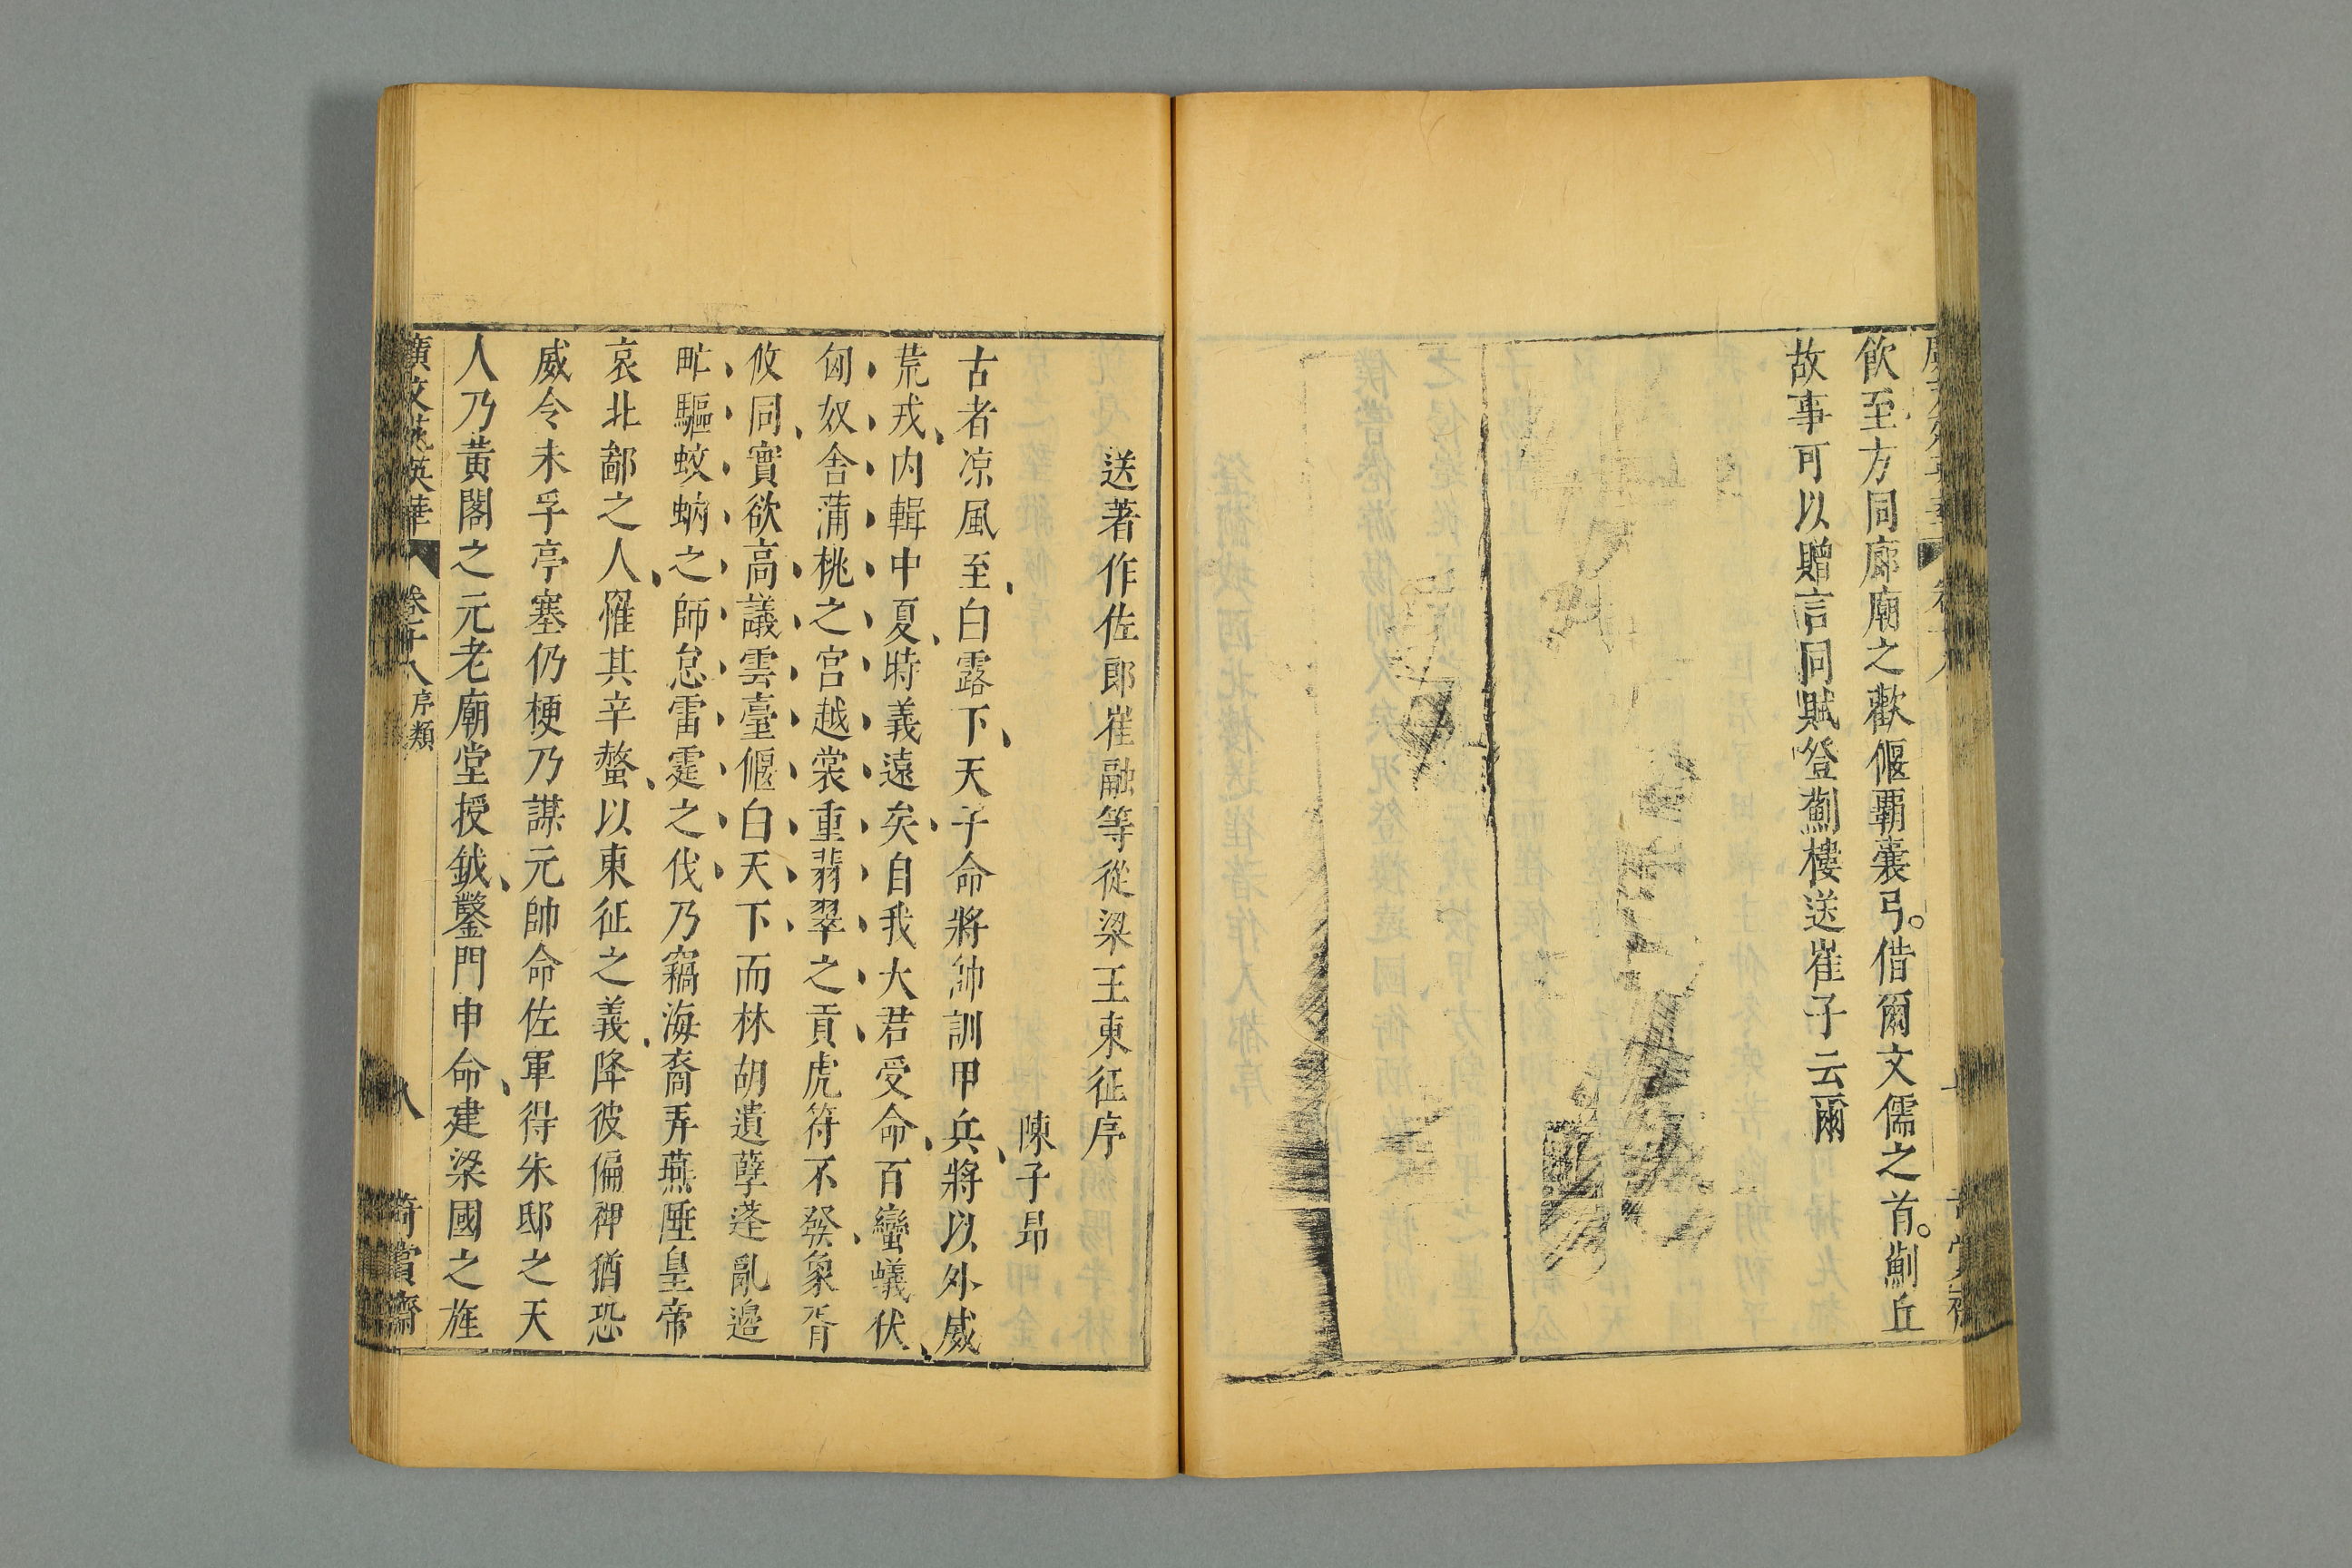 飲至方同廊廟之歡偃覇櫜弓。借爾文儒之首。薊丘
故事可以贈言同賦登薊樓送崔子云爾
送著作佐郎崔融等從梁王東征序
陳子昂
古者凉風至、白露下、天子命將帥訓甲兵、將以外威
荒戎、内輯中夏、時義遠矣、自我大君受命、百蠻蟻伏、
匈奴舍蒲桃之宮越裳重翡翠之貢虎符不發、象胥
攸同、實欲高議雲臺偃白天下而林胡遺孽蓬亂邉
甿驅蚊蚋之師怠雷霆之伐乃竊海裔弄燕陲皇帝
哀北鄙之人、罹其辛螫、以東征之義、降彼偏裨猶恐
威令未孚亭塞仍梗乃謀元帥命佐軍得朱邸之天
人乃黃閣之元老廟堂授鉞、鑿門申命、建梁國之旌
廣文苑英華 卷十八 序類 八 奇賞齋